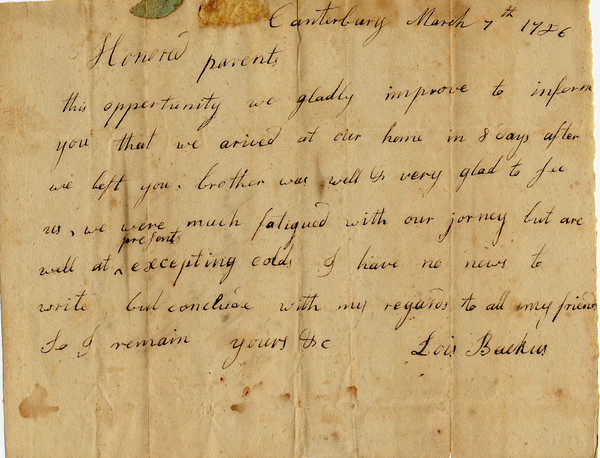 Canterbury March 7th 1786
Honored parents
this oppertunity we gladly improve to inform
you that we arived at our home in 8 days after
we left you. brother was well & very glad to see
us, we were much fatigued with our jorney but are
present
well at ^ excepting colds I have no news to
write but conclude with my regards to all my friends
So I remain yours &c Lois Backus